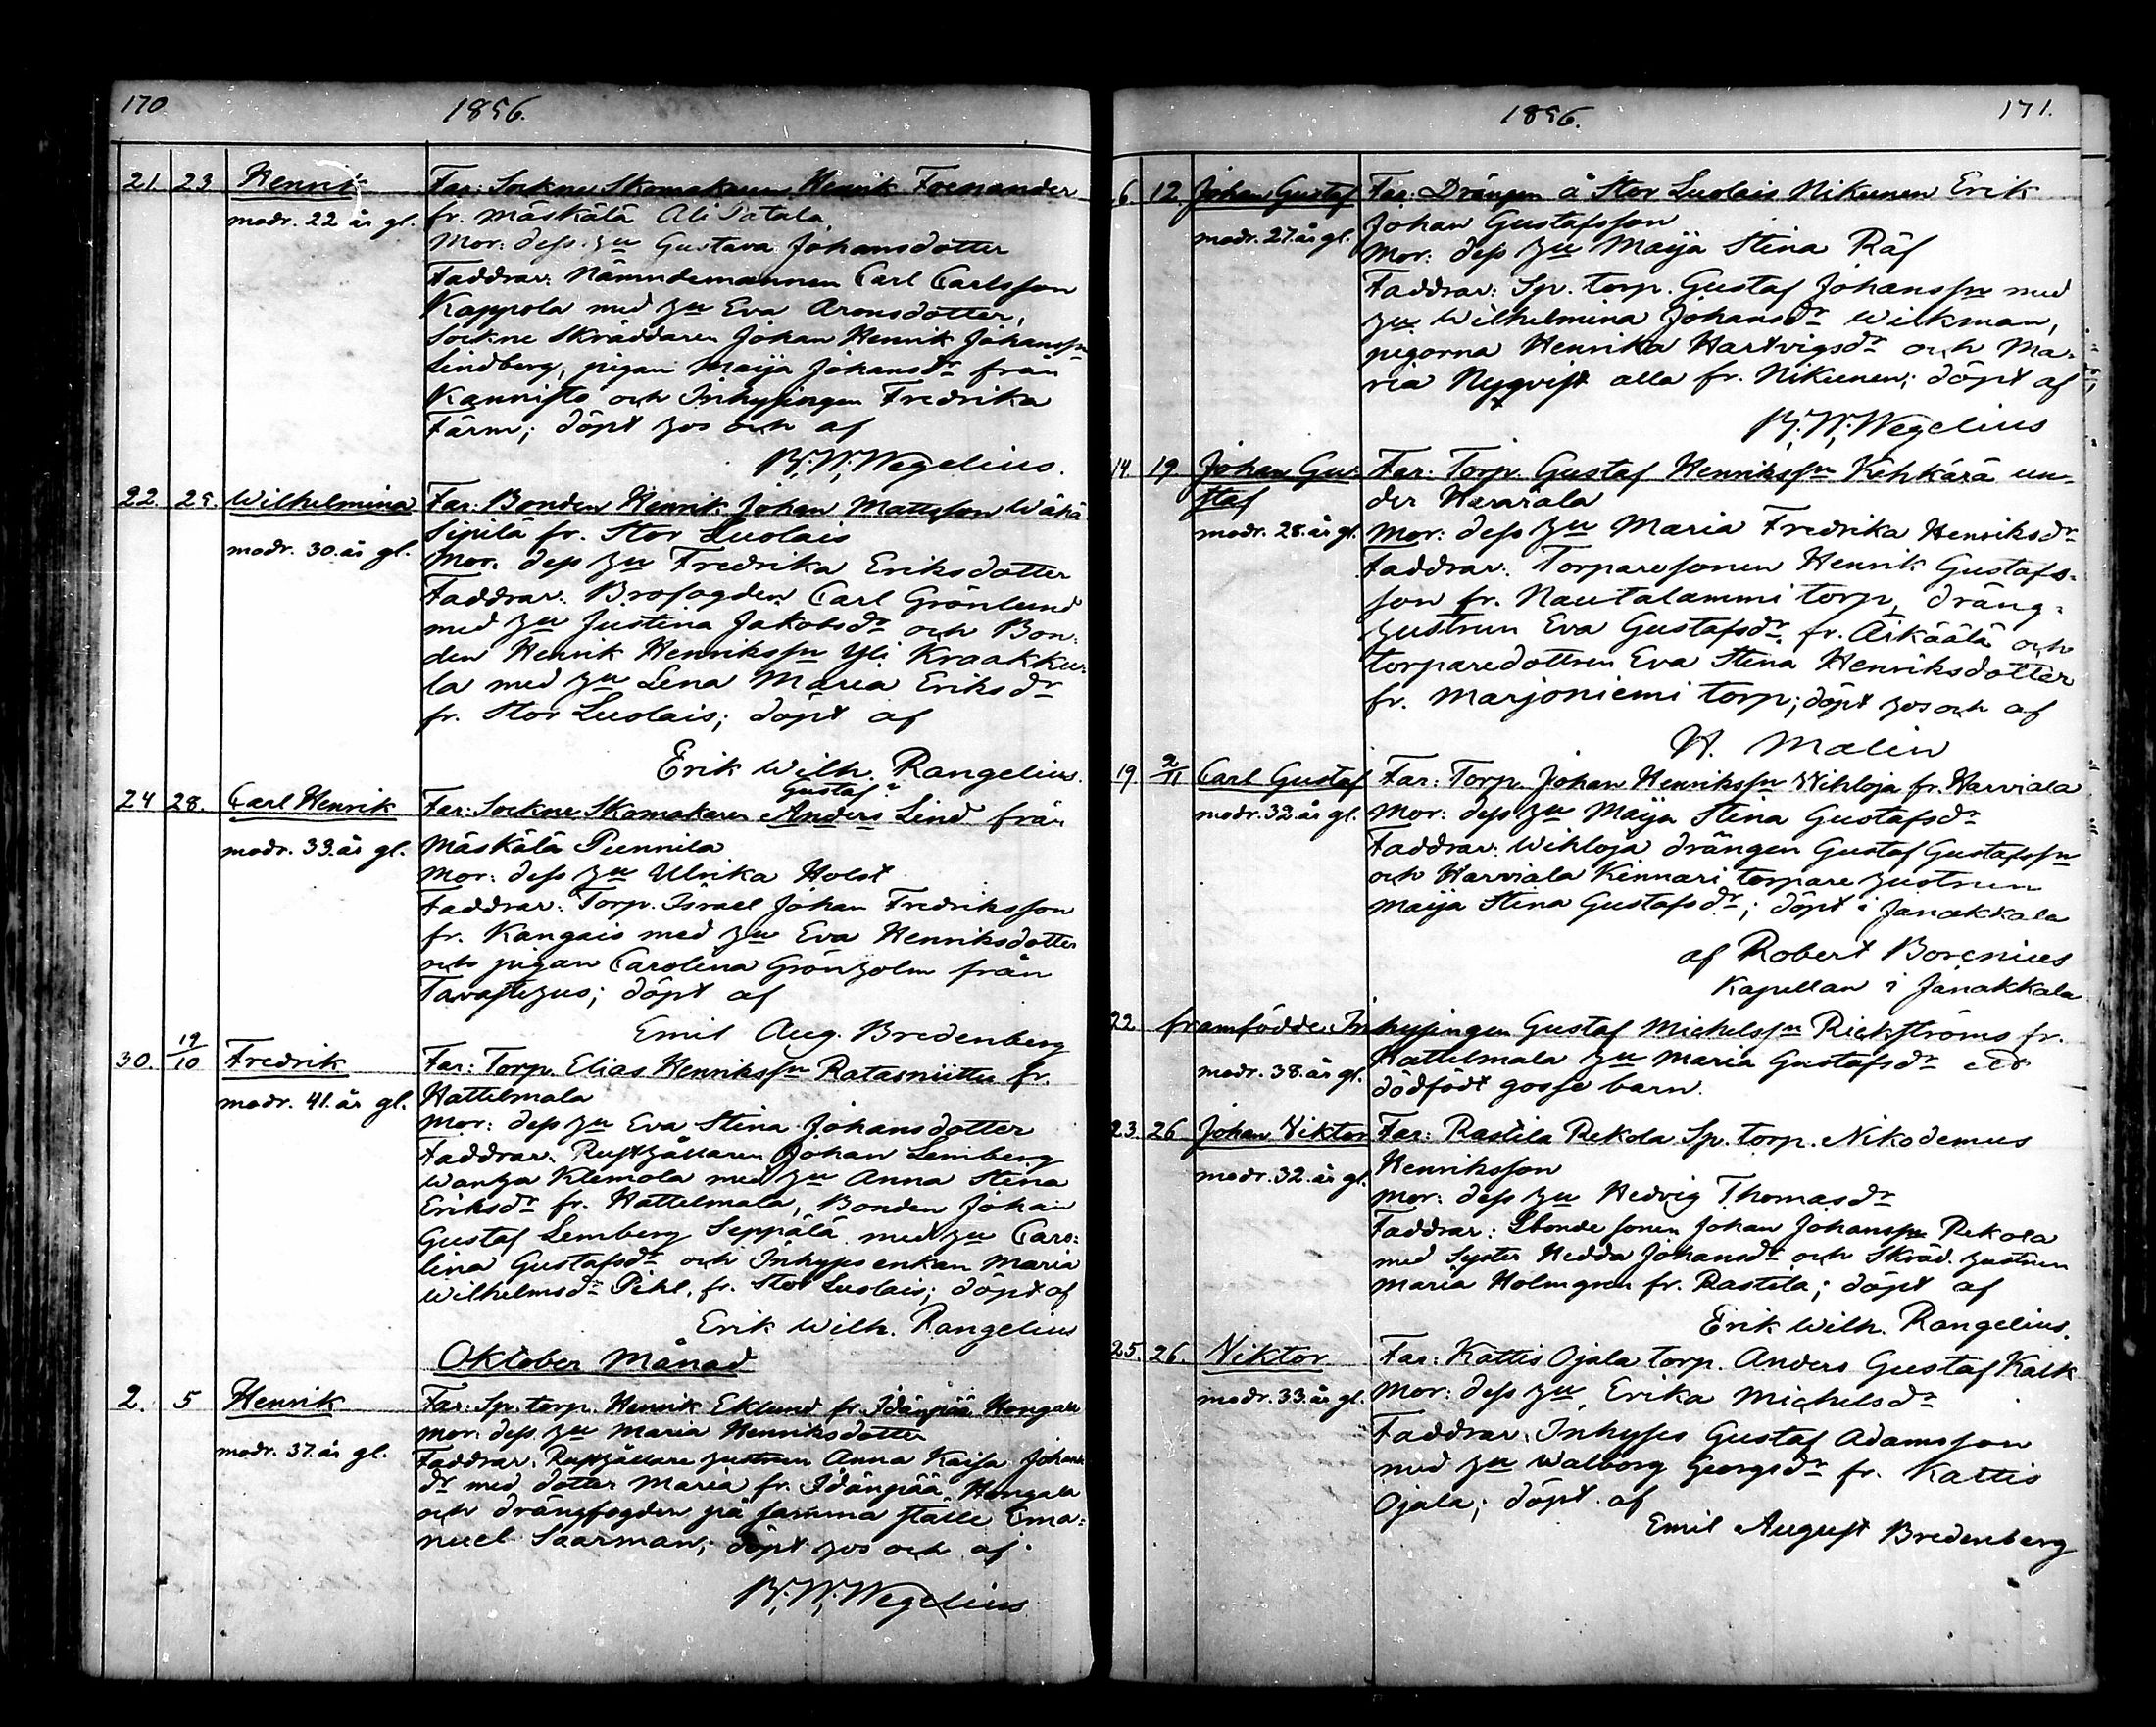 170
1856.
21. 23 Henrik Far: Sockne Skomakaren Henrik Forsnander
modr. 22 år gl. fr. Mäskälä Ali Patala
Mor: dess hu Gustava Johansdotter
Faddrar: Nämndemannen Carl Carlsson
Kappola med hu Eva Aronsdotter,
Sockne Skräddaren Johan Henrik Johanssn
Lindberg, pigan Maija Johansdr från
Kannisto och Inhysingen Fredrika
Färm; döpt hos och af
B. W. Wegelius.
22. 25. Wilhelmina Far: Bonden Henrik Johan Mattsson Wähä
modr. 30. år gl. Sipilä fr. Stor Luolais
Mor. dess hu Fredrika Eriksdotter
Faddrar. Brofogden Carl Grönlund
med hu Justina Jakobsdr och Bon-
den Henrik Henrikssn Yli Kraakku-
la med hu Lena Maria Eriksdr
fr. Stor Luolais; döpt af
Erik Wilh. Rangelius.
Gustaf
24 28. Carl Henrik Far: Sockne Skomakaren Anders Lind från
modr. 33. år gl. Mäskälä Punnila
Mor: dess hu Ulrika Holst
Faddrar: Torp. Israel Johan Fredriksson
fr. Kangais med hu Eva Henriksdotter
och pigan Carolina Grönholm från
Tavastehus; döpt af
Emil Aug. Bredenberg
30. 19/10 Fredrik Far: Torp. Elias Henrikssn Ratasniittu fr.
modr. 41. år gl. Hattelmala
Mor: dess hu Eva Stina Johansdotter
Faddrar. Rusthållaren Johan Lemberg
Wanha Klemola med hu Anna Stina
Eriksdr fr. Hattelmala, Bonden Johan
Gustaf Lemberg Seppälä med hu Caro-
lina Gustafsdr och Inhyses enkan Maria
Wilhelmsdr Pihl. fr. Stor Luolais; döpt af
Erik Wilh. Rangelius
Oktober Månad
2. 5 Henrik Far: Sp. torp. Henrik Eklund fr. Idänpää Hongala
Mor: dess hu Maria Henriksdotter
modr. 37. år gl. Faddrar. Rusthållare hustrun Anna Kaisa Johans
dr med dotter Maria fr. Idänpää Hongala
och drängfogden på samma ställe Ema-
nuel Saarman; döpt hos och af
B. W. Wegelius
1856.
171.
6 12. Johan Gustaf Far: Drängen å Stor Luolais Nikunen Erik
modr. 27. år gl. Johan Gustafsson
Mor: dess hu Maija Stina Räf
Faddrar: Sp. torp. Gustaf Johanssn med
hu Wilhelmina Johansdr Wickman,
pigorna Henrika Hartvigsdr och Ma-
ria Nyqvist alla fr. Nikunen; döpt af
B. W. Wegelius
14. 19 Johan Gu- Far: Torp. Gustaf Henrikssn Kehkärä un-
staf der Harviala
modr. 28. år gl. Mor: dess hu Maria Fredrika Henriksdr
Faddrar. Torparesonen Henrik Gustafs-
son fr. Nautalammi torp, dräng-
hustrun Eva Gustafsdr fr. Ärkäälä och
torparedottren Eva Stina Henriksdotter
fr. Marjoniemi torp; döpt hos och af
H. Malin
19. 2/11 Carl Gustaf Far: Torp. Johan Henrikssn Wihloja fr. Harviala
modr. 32. år gl. Mor: dess hu Maija Stina Gustafsdr
Faddrar: Wihloja drängen Gustaf Gustafssn
och Harviala Kinnari torpare hustrun
Maija Stina Gustafsdr; döpt i Janakkala
af Robert Borenius
Kapellan i Janakkala
22 framfödde Inhysingen Gustaf Michelssn Rickströms fr.
modr. 38. år gl. Hattelmala hu Maria Gustafsdr ett
dödfödt gosse barn.
23. 26 Johan Viktor Far: Rastila Rekola Sp. torp. Nikodemus
modr. 32. år gl. Henriksson
Mor: dess hu Hedvig Thomasdr
Faddrar: Bonde sonen Johan Johanssn Rekola
med Syster Hedda Johansdr och Skräd. hustrun
Maria Holmgren fr. Rastila; döpt af
Erik Wilh. Rangelius.
25. 26. Viktor Far: Kattis Ojala torp. Anders Gustaf Kalk
modr. 33. år gl. Mor: dess hu Erika Michelsdr
Faddrar. Inhyses Gustaf Adamsson
med hu Walborg Georgsdr fr. Kattis
Ojala; döpt af
Emil August Bredenberg